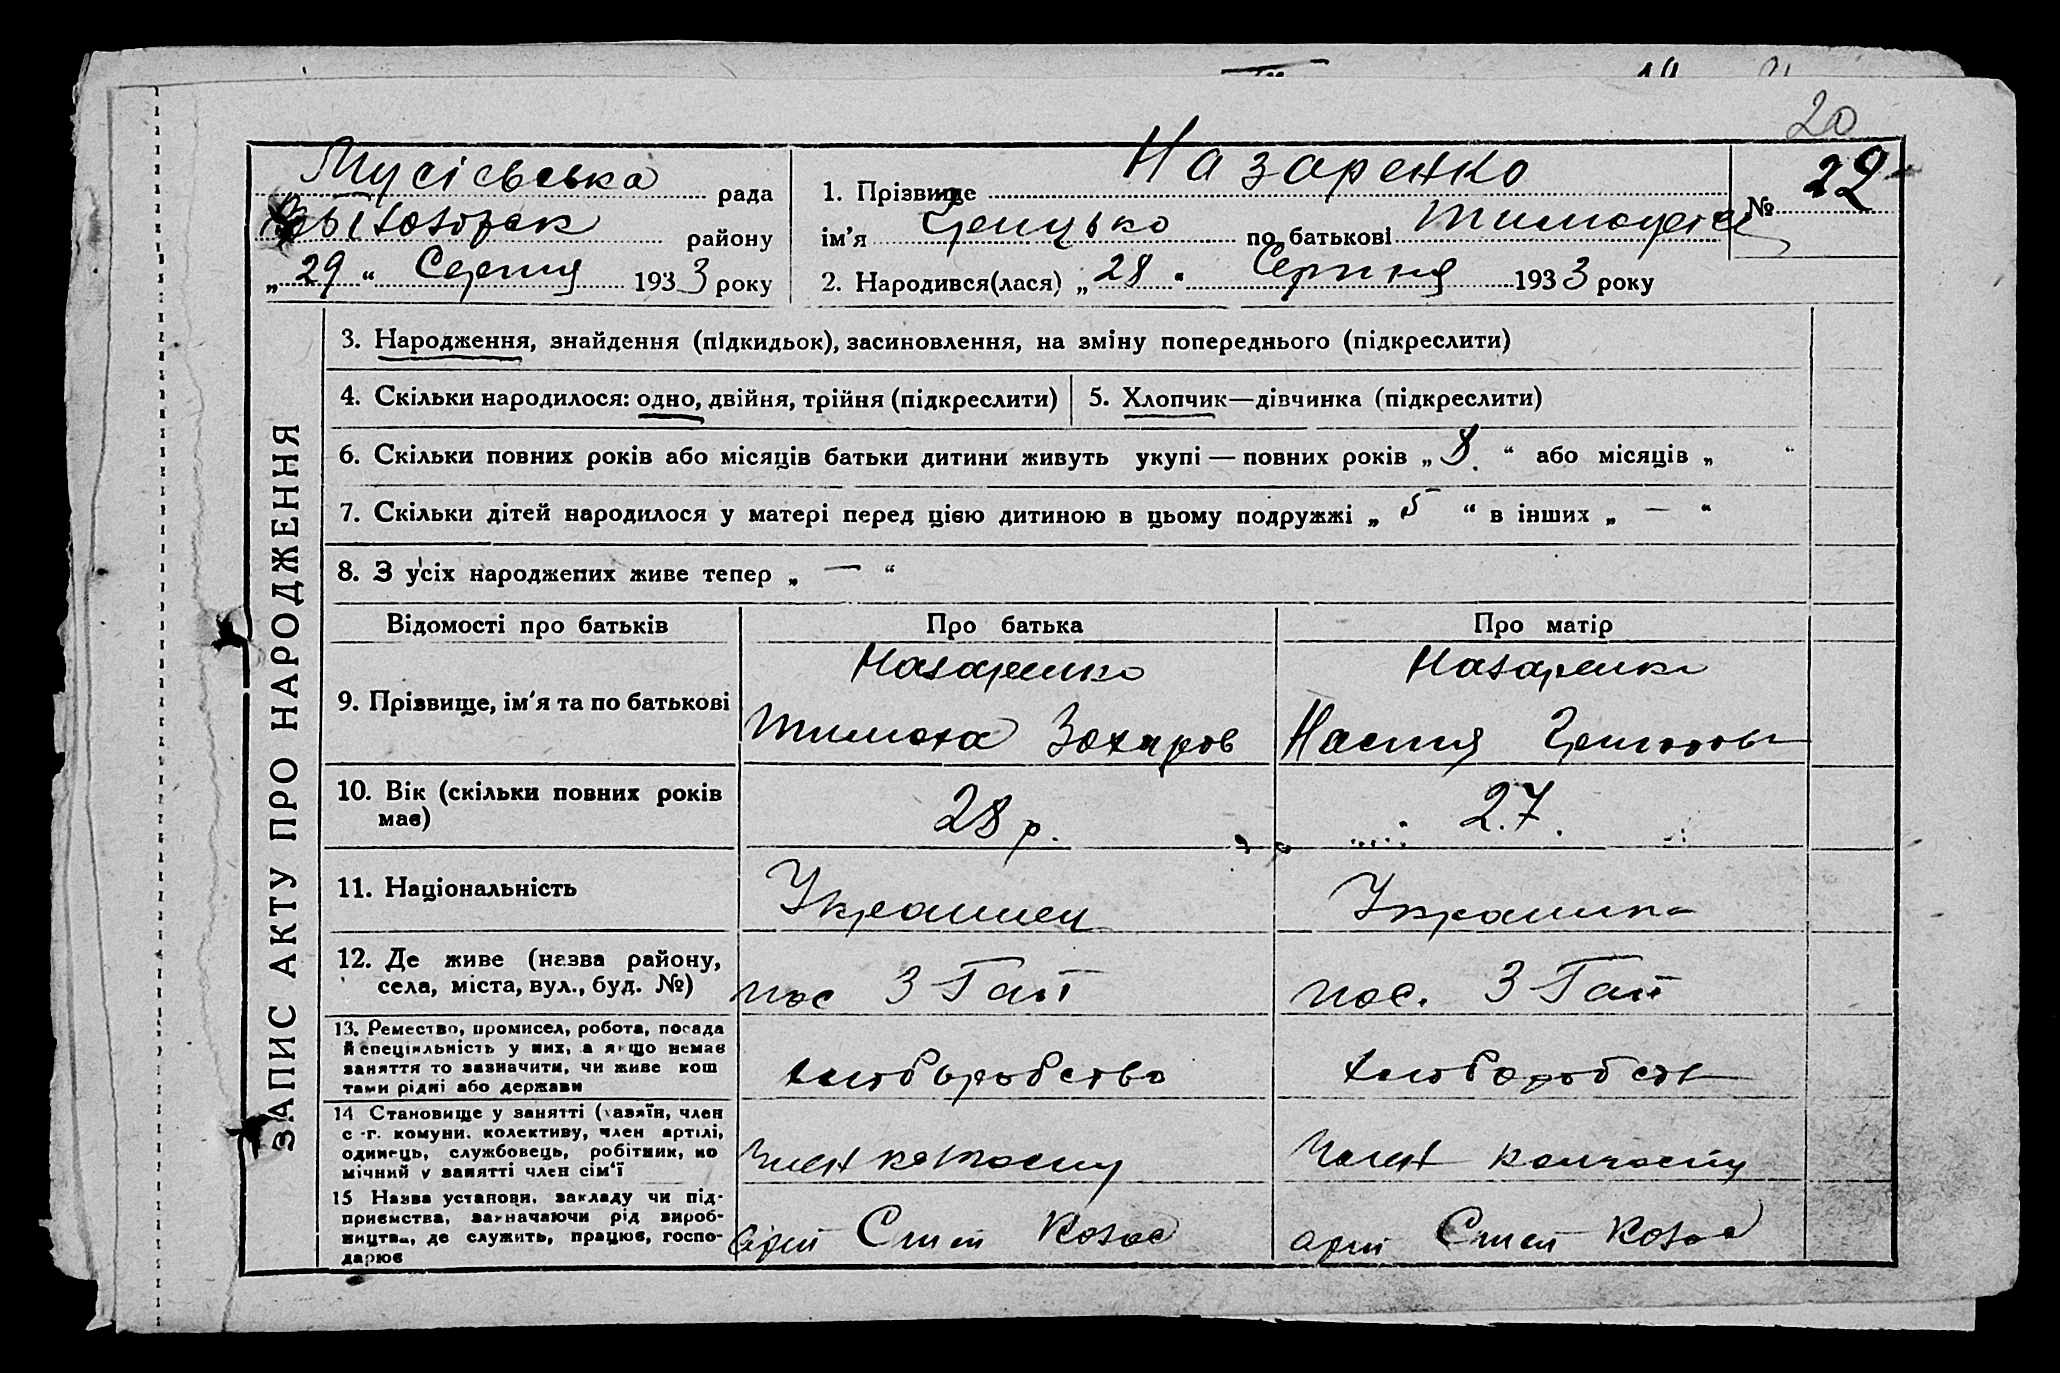 20
Мусієвська рада
району
„ 29 “ Серпня 1933 року
1. Прізвище Назаренко
№ 22
ім'я Грицько по батькові Тимофієв
2. Народився(лася) „ 28 “ Серпня 1933 року
ЗАПИС АКТУ ПРО НАРОДЖЕННЯ
3. Народження, знайдення (підкидьок), засиновлення, на зміну попереднього (підкреслити)
4. Скільки народилося: одно, двійня, трійня (підкреслити) 5. Хлопчик—дівчинка (підкреслити)
6. Скільки повних років або місяців батьки дитини живуть укупі — повних років „ 8. “ або місяців „ “
7. Скільки дітей народилося у матері перед цією дитиною в цьому подружжі „ 5 “ в інших „ — “
8. З усіх народжених живе тепер „ — “
Відомості про батьків Про батька Про матір
9. Прізвище, ім'я та по батькові
Назаренко
Тимоха Захаров
Назаренко
Настя
10. Вік (скільки повних років
має)
28 р.
27.
11. Національність
Украинец
Украинка
12. Де живе (назва району,
села, міста, вул., буд. №)
пос 3 Гат
пос. 3 Гат
13. Ремество, промисел, робота, посада
й спеціяльність у них, а якщо немає
заняття то зазначити, чи живе кош
тами рідні або держави
хлібо робство
хліборобств
14 Становище у занятті (хазяїн, член
с.-г. комуни, колективу, член артілі,
одинець, службовець, робітник, по
мічний у занятті член сім'ї
Член колгоспу
Член колгоспу
15 Назва установи, закладу чи під-
приємства, зазначаючи рід вироб-
ництва, де служить, працює, госпо-
дарює